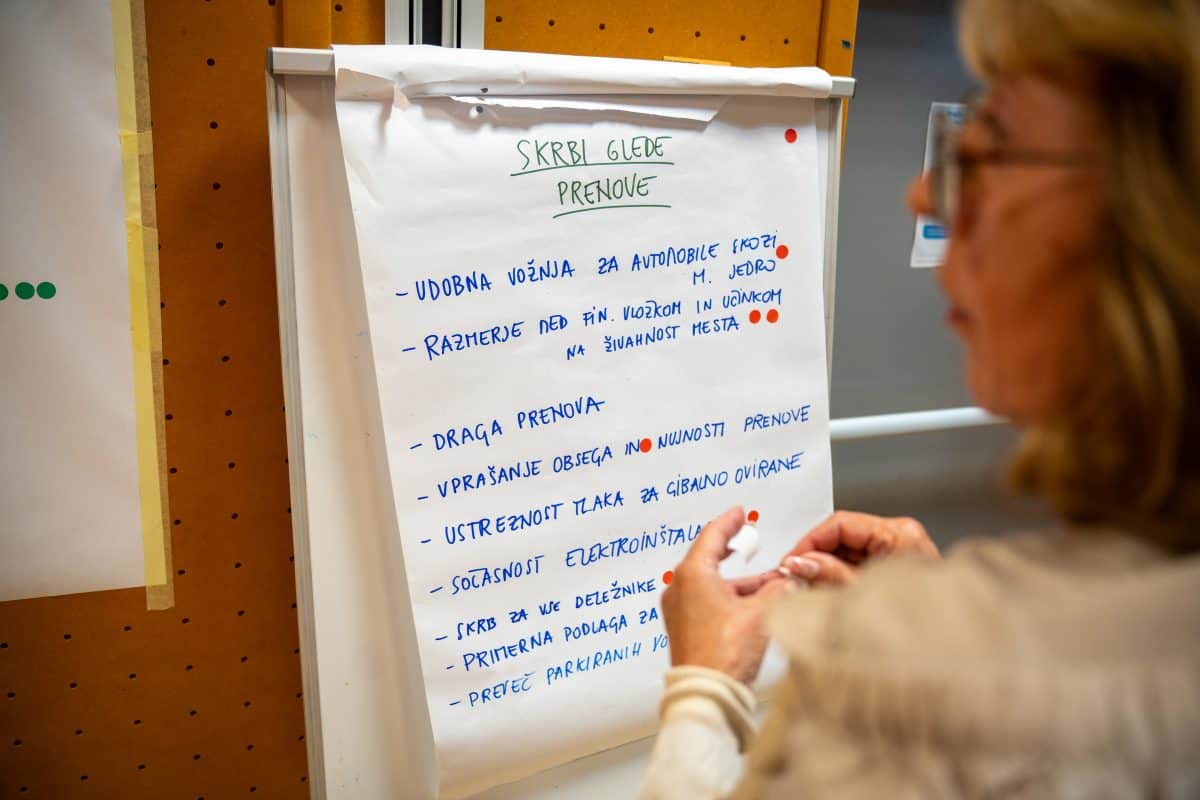 SKRBI GLEDE
PRENOVE
- UDOBNA VOŽNJA ZA AVTOMOBILE SKOZI
M. JEDRO
- RAZMERJE MED FIN. VLOŽKOM IN UČINKOM
NA ŽIVAHNOST MESTA
- DRAGA PRENOVA
- VPRAŠANJE OBSEGA IN NUJNOSTI PRENOVE
- USTREZNOST TLAKA ZA GIBALNO OVIRANE
- SOČASNOST
- SKRB ZA VSE DELEŽNIKE
- PRIMERNA PODLAGA ZA
- PREVEČ PARKIRANIH